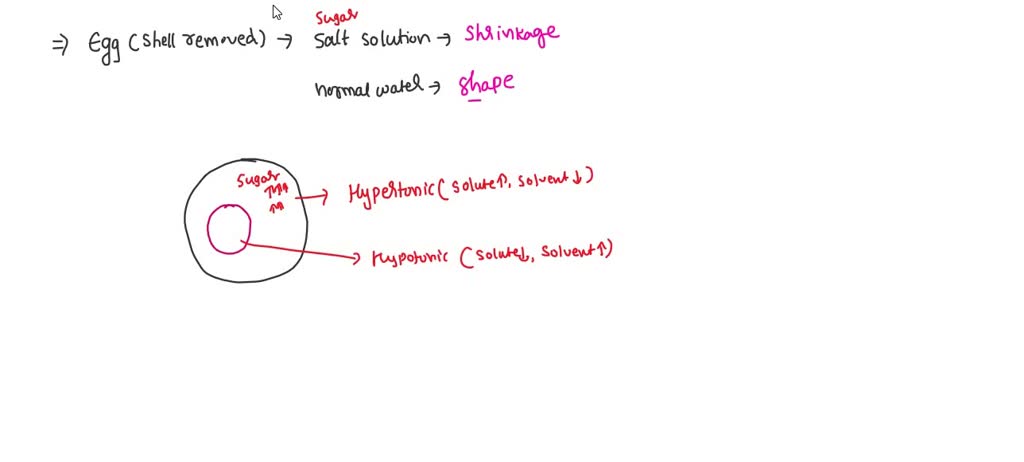 Sugar
⇒ Egg (shell removed) → Salt solution → Shrinkage
normal water → shape
Sugar
↑↑↑↑
↑↑
→ Hypertonic (solute↑, solvent↓)
→ Hypotonic (solute↓, solvent↑)